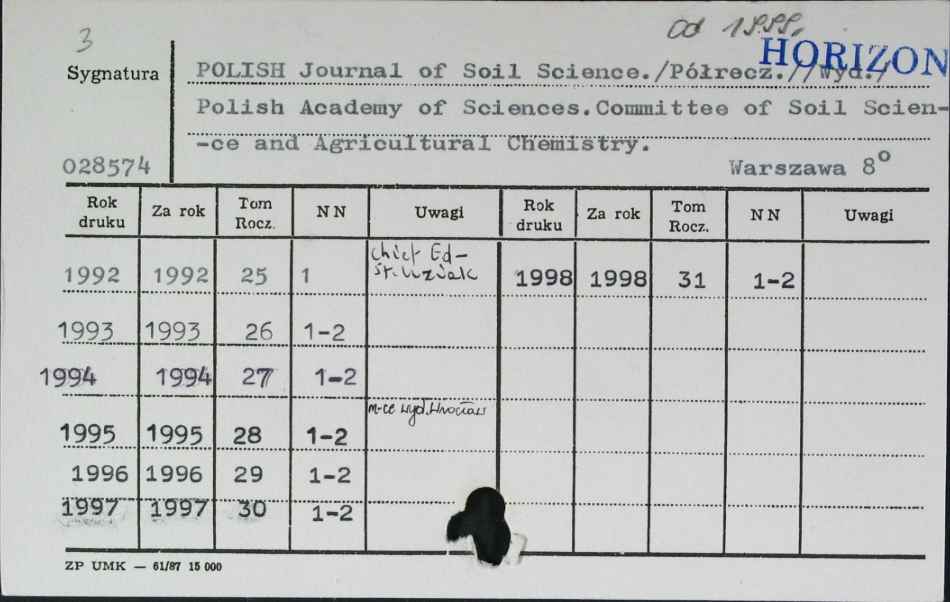 3
Od 1999.
HORIZON
Sygnatura
POLISH Journal of Soil Science./Półrocz.//Wyd./
Polish Academy of Sciences.Committee of Soil Scien-
-ce and Agricultural Chemistry.
028574 Warszawa 8°
Rok druku Za rok Tom Rocz. NN Uwagi Rok druku Za rok Tom Rocz. NN Uwagi
1992 1992 25 1 Chief Ed- St. Uziak 1998 1998 31 1-2
1993 1993 26 1-2
1994 1994 27 1-2
1995 1995 28 1-2 m-ce wyd. Wrocław
1996 1996 29 1-2
1997 1997 30 1-2
ZP UMK — 61/87 15 000